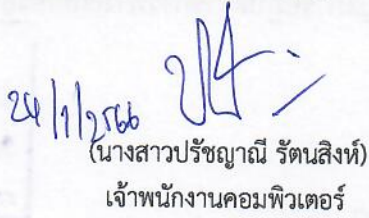 24/1/2566
(นางสาวปรัชญาณี รัตนสิงห์)
เจ้าพนักงานคอมพิวเตอร์